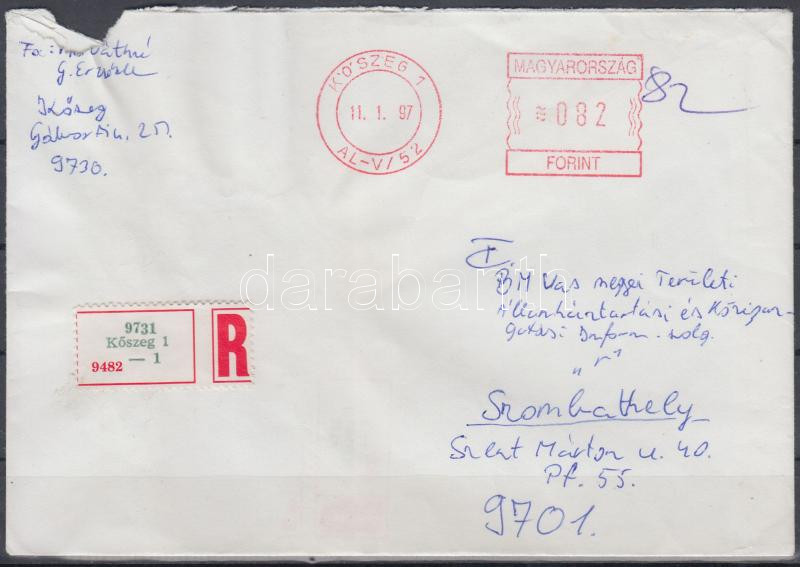 G. Er
Kőszeg
u. 25.
9730.
KŐSZEG 1
11. 1. 97
AL-V/52
MAGYARORSZÁG
≋082
FORINT
82
T.
BM Vas megyei Területi
Államháztartási és Közigaz-
gatási Inform. szolg.
"r"
Szombathely
Szent Márton u. 40.
Pf. 55.
9701.
9731
Kőszeg 1
— 1
9482
R
darabanth